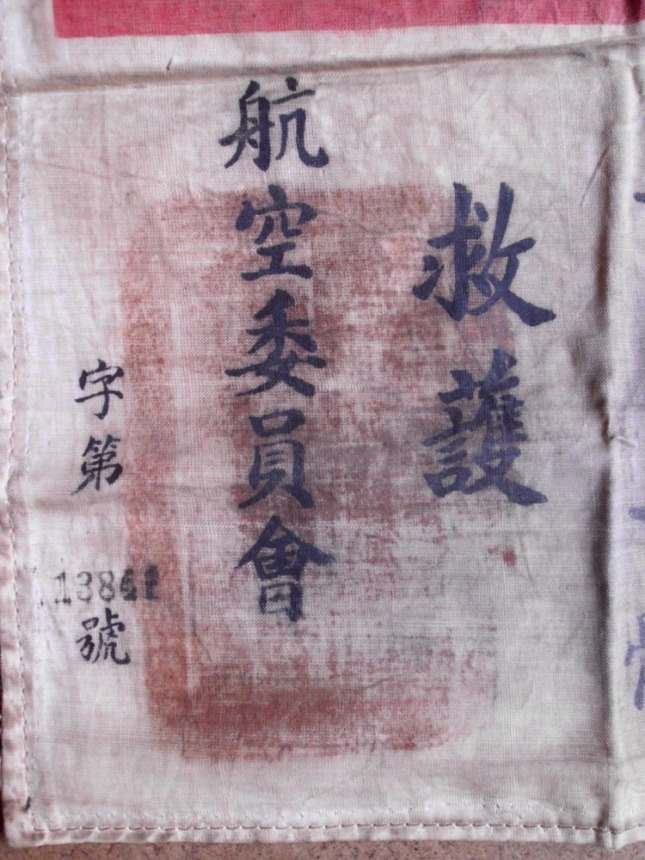 救護
航空委員會
字第
號